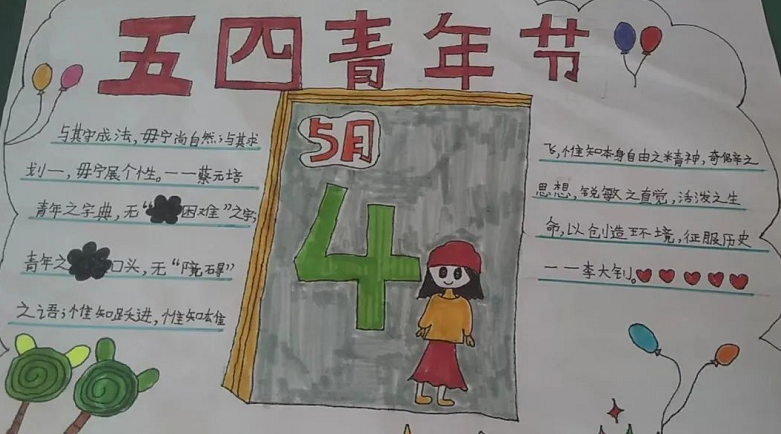 五四青年节
与其守成法,毋宁尚自然;与其求
划一,毋宁展个性。——蔡元培
青年之字典,无“困难”之字;
青年之口头,无“障碍”
之语;惟知跃进,惟知雄
5月
4
飞,惟知本身自由之精神,奇僻之
思想,锐敏之直觉,活泼之生
命,以创造环境,征服历史
——李大钊。